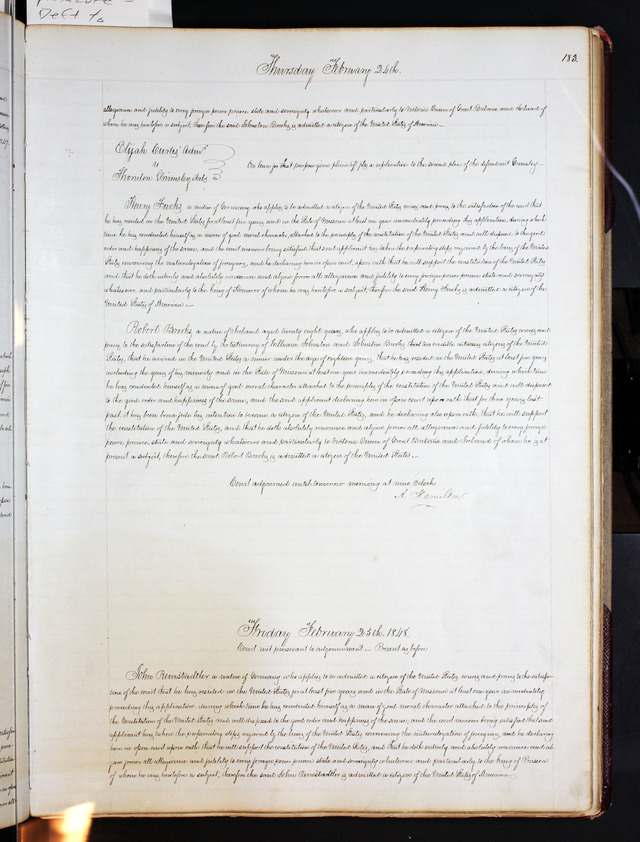 Deft to
183.
Thursday February 24th.
allegiance and fidelity to every foreign power prince state and sovereignty whatever and particularly to Victoria Queen of Great Britain and Ireland of
whom he was heretofore a subject, therefore the said Johnston Brooks is admitted a citizen of the United States of America
Elijah Curtis Admr
vs
Thornton Grimsley
On leave for that purpose given plaintiff files a replication to the second plea of the defendant Grimsley
Henry a native of Germany who applies to be admitted a citizen of the United States comes and proves to the satisfaction of the court that
he has resided in the United States for at least five years and in the State of Missouri at least one year immediately preceding this application, during which
time he has conducted himself as a man of good moral character, attached to the principles of the constitution of the United States and well disposed to the good
order and happiness of the same, and the court moreover being satisfied that said applicant has taken the preparatory steps required by the laws of the United
States concerning the naturalization of foreigners, and he declaring here in open court, upon oath that he will support the constitution of the United States
and that he doth entirely and absolutely renounce and abjure forever all allegiance and fidelity to every foreign power prince state and sovereignty
whatsoever and particularly to the King of of whom he was heretofore a subject, therefore the said Henry is admitted a citizen of the
United States of America
Robert Brooks a native of Ireland aged twenty eight years, who applies to be admitted a citizen of the United States comes and
proves to the satisfaction of the court by the testimony of William Johnston and Johnston Brooks two credible witnesses citizens of the United
States, that he arrived in the United States a minor under the age of eighteen years, that he has resided in the United States at least five years
including the years of his minority and in the State of Missouri at least one year immediately preceding this application, during which time
he has conducted himself as a man of good moral character attached to the principles of the constitution of the United States and well disposed
to the good order and happiness of the same, and the said applicant declaring here in open court upon oath that for three years last
past it has been bona fide his intention to become a citizen of the United States, and he declaring also upon oath, that he will support
the constitution of the United States, and that he doth absolutely renounce and abjure forever all allegiance and fidelity to every foreign
power, prince, state and sovereignty whatsoever and particularly to Victoria Queen of Great Britain and Ireland of whom he is at
present a subject, therefore the said Robert Brooks is admitted a citizen of the United States
Court adjourned until tomorrow morning at nine o'clock
A. Hamilton
Friday February 25th. 1848.
Court met pursuant to adjournment Present as before
John Reinstadtler a native of Germany who applies to be admitted a citizen of the United States, comes and proves to the satisfac-
tion of the court that he has resided in the United States for at least five years and in the State of Missouri at least one year immediately
preceding this application, during which time he has conducted himself as a man of good moral character attached to the principles of
the Constitution of the United States and well disposed to the good order and happiness of the same, and the court moreover being satisfied that said
applicant has taken the preparatory steps required by the laws of the United States concerning the naturalization of foreigners, and he declaring
here in open court upon oath that he will support the constitution of the United States, and that he doth entirely and absolutely renounce and ab-
jure forever all allegiance and fidelity to every foreign power prince state and sovereignty whatsoever and particularly to the King of
of whom he was heretofore a subject, therefore the said John Reinstadtler is admitted a citizen of the United States of America